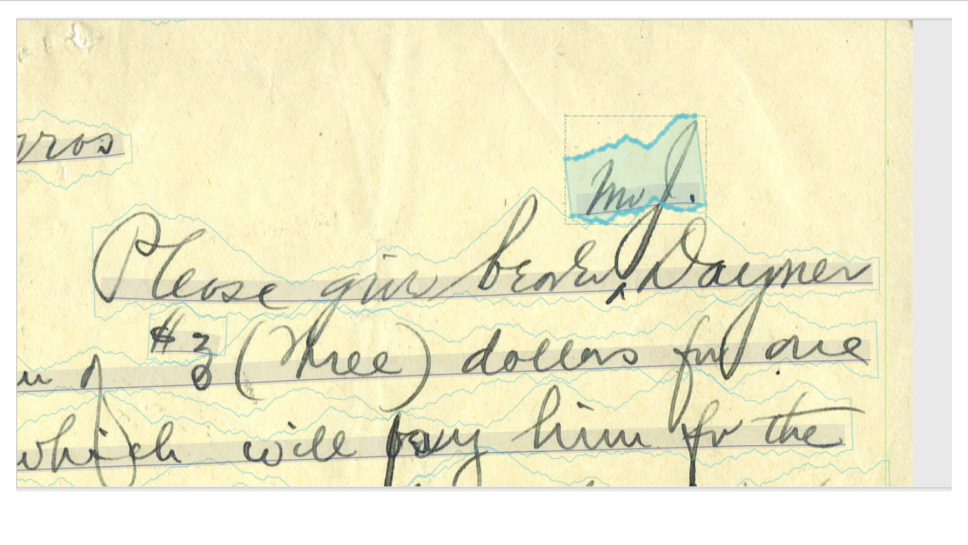 ros
Mr J.
Please give bearer ‸ Daymer
$3 (Three) dollars for one
which will pay him for the